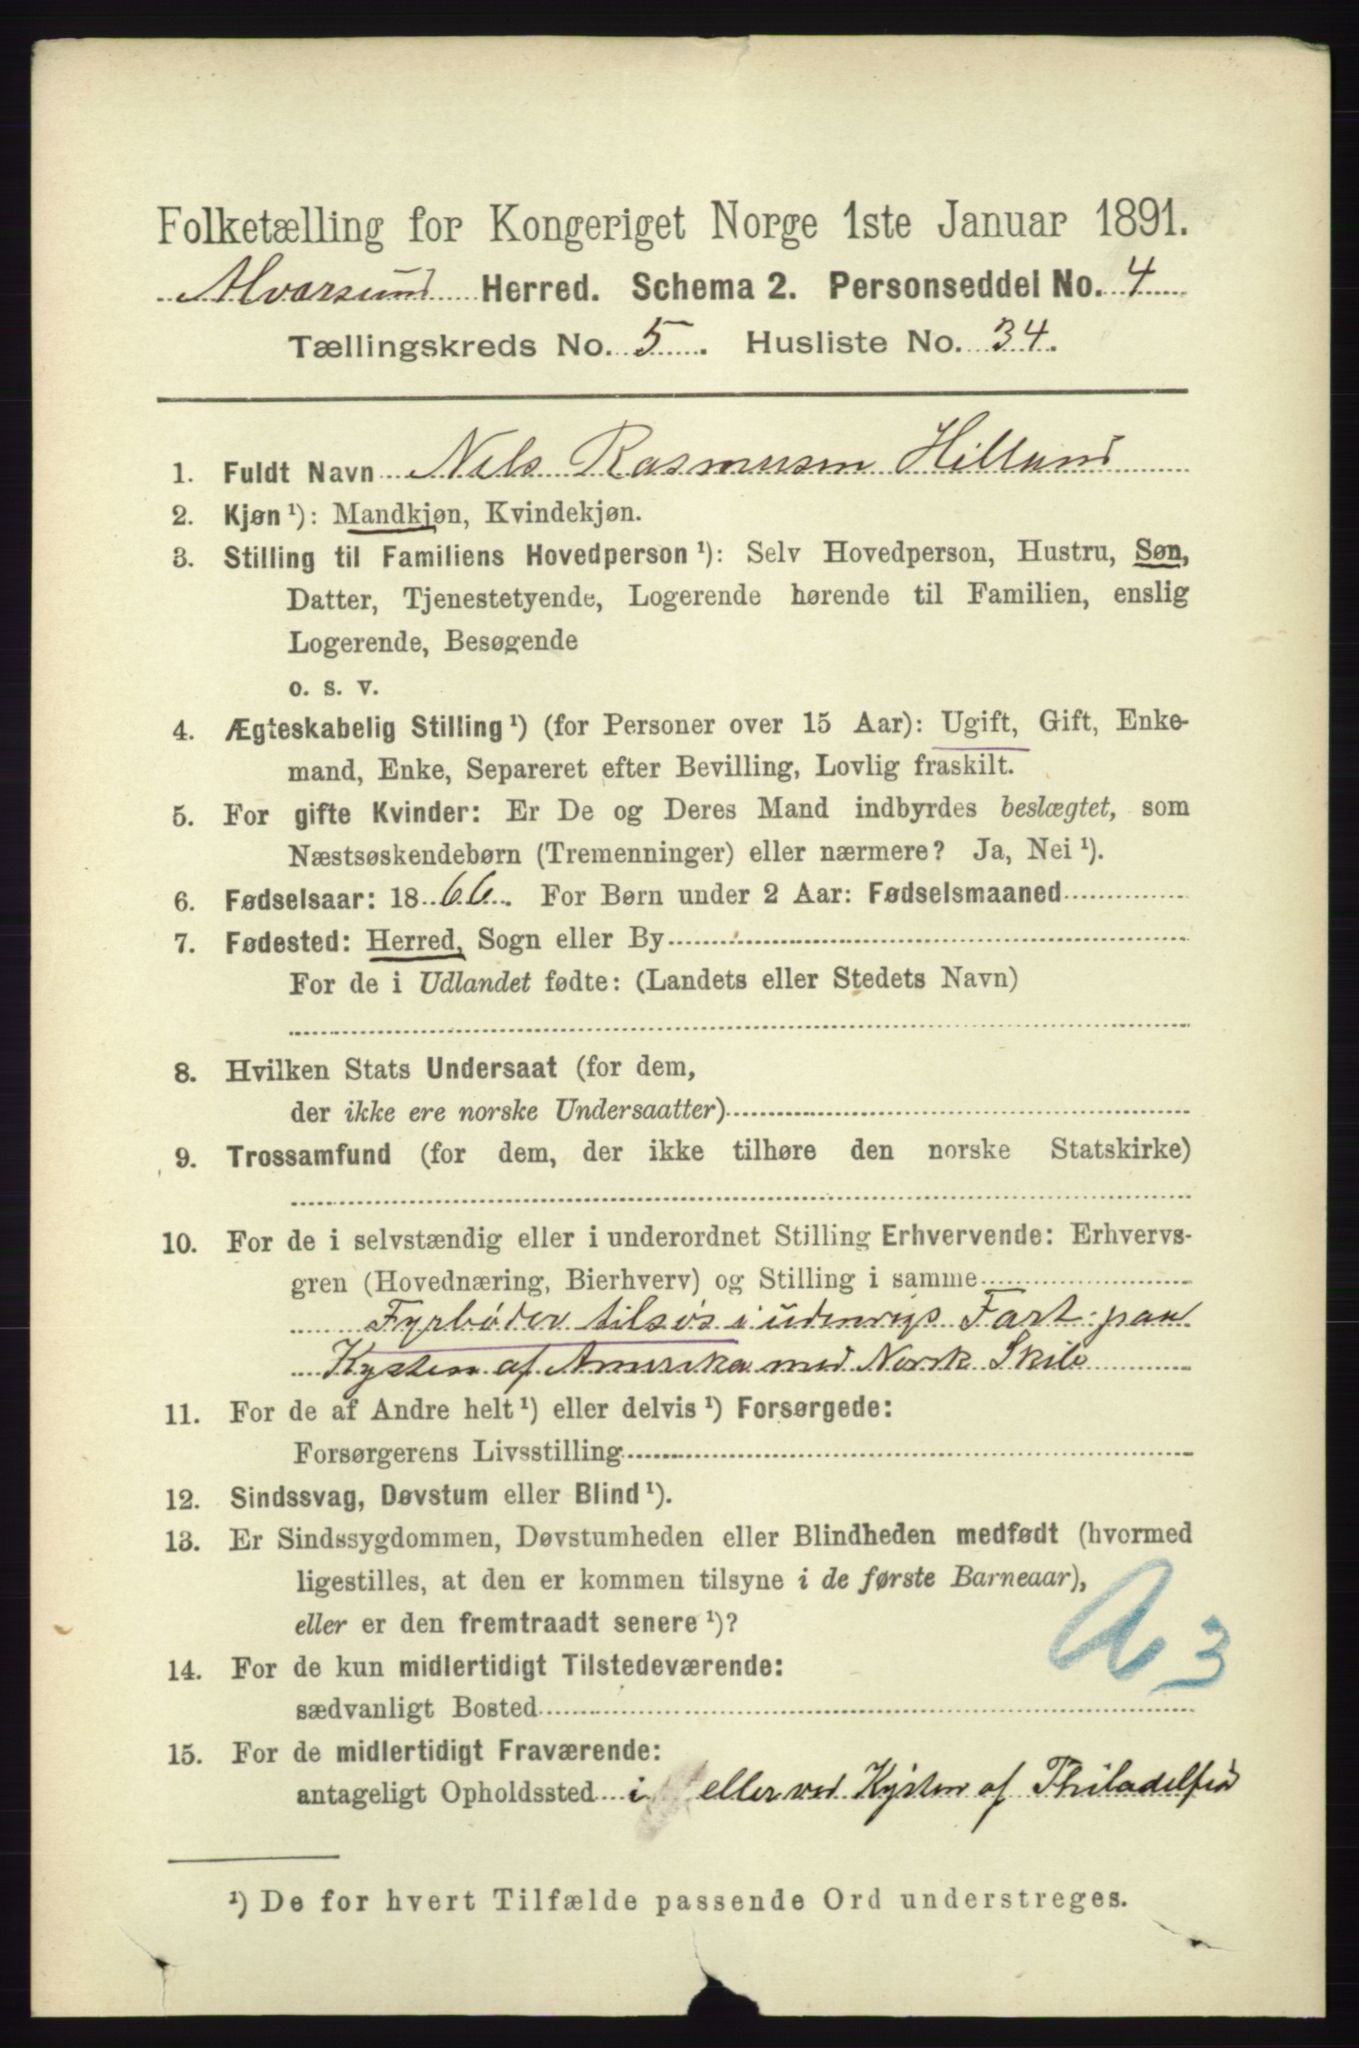 Folketælling for Kongeriget Norge 1ste Januar 1891.
Alversund Herred. Schema 2. Personseddel No. 4
Tællingskreds No. 5. Husliste No. 34.
1. Fuldt Navn Nils Rasmusen Hilland
2. Kjøn ¹): Mandkjøn, Kvindekjøn.
3. Stilling til Familiens Hovedperson ¹): Selv Hovedperson, Hustru, Søn,
Datter, Tjenestetyende, Logerende hørende til Familien, enslig
Logerende, Besøgende
o. s. v.
4. Ægteskabelig Stilling ¹) (for Personer over 15 Aar): Ugift, Gift, Enke-
mand, Enke, Separeret efter Bevilling, Lovlig fraskilt.
5. For gifte Kvinder: Er De og Deres Mand indbyrdes beslægtet, som
Næstsøskendebørn (Tremenninger) eller nærmere? Ja, Nei ¹).
6. Fødselsaar: 1866. For Børn under 2 Aar: Fødselsmaaned
7. Fødested: Herred, Sogn eller By
For de i Udlandet fødte: (Landets eller Stedets Navn)
8. Hvilken Stats Undersaat (for dem,
der ikke ere norske Undersaatter)
9. Trossamfund (for dem, der ikke tilhøre den norske Statskirke)
10. For de i selvstændig eller i underordnet Stilling Erhvervende: Erhvervs-
gren (Hovednæring, Bierhverv) og Stilling i samme
Fyrbøder tilsøs i udenrigs Fart paa
Kysten af Amerika med Norsk Skib
11. For de af Andre helt ¹) eller delvis ¹) Forsørgede:
Forsørgerens Livsstilling
12. Sindssvag, Døvstum eller Blind ¹).
13. Er Sindssygdommen, Døvstumheden eller Blindheden medfødt (hvormed
ligestilles, at den er kommen tilsyne i de første Barneaar),
eller er den fremtraadt senere ¹)?
A 3
14. For de kun midlertidigt Tilstedeværende:
sædvanligt Bosted
15. For de midlertidigt Fraværende:
antageligt Opholdssted i eller ved Kysten af Philadelfia
¹) De for hvert Tilfælde passende Ord understreges.